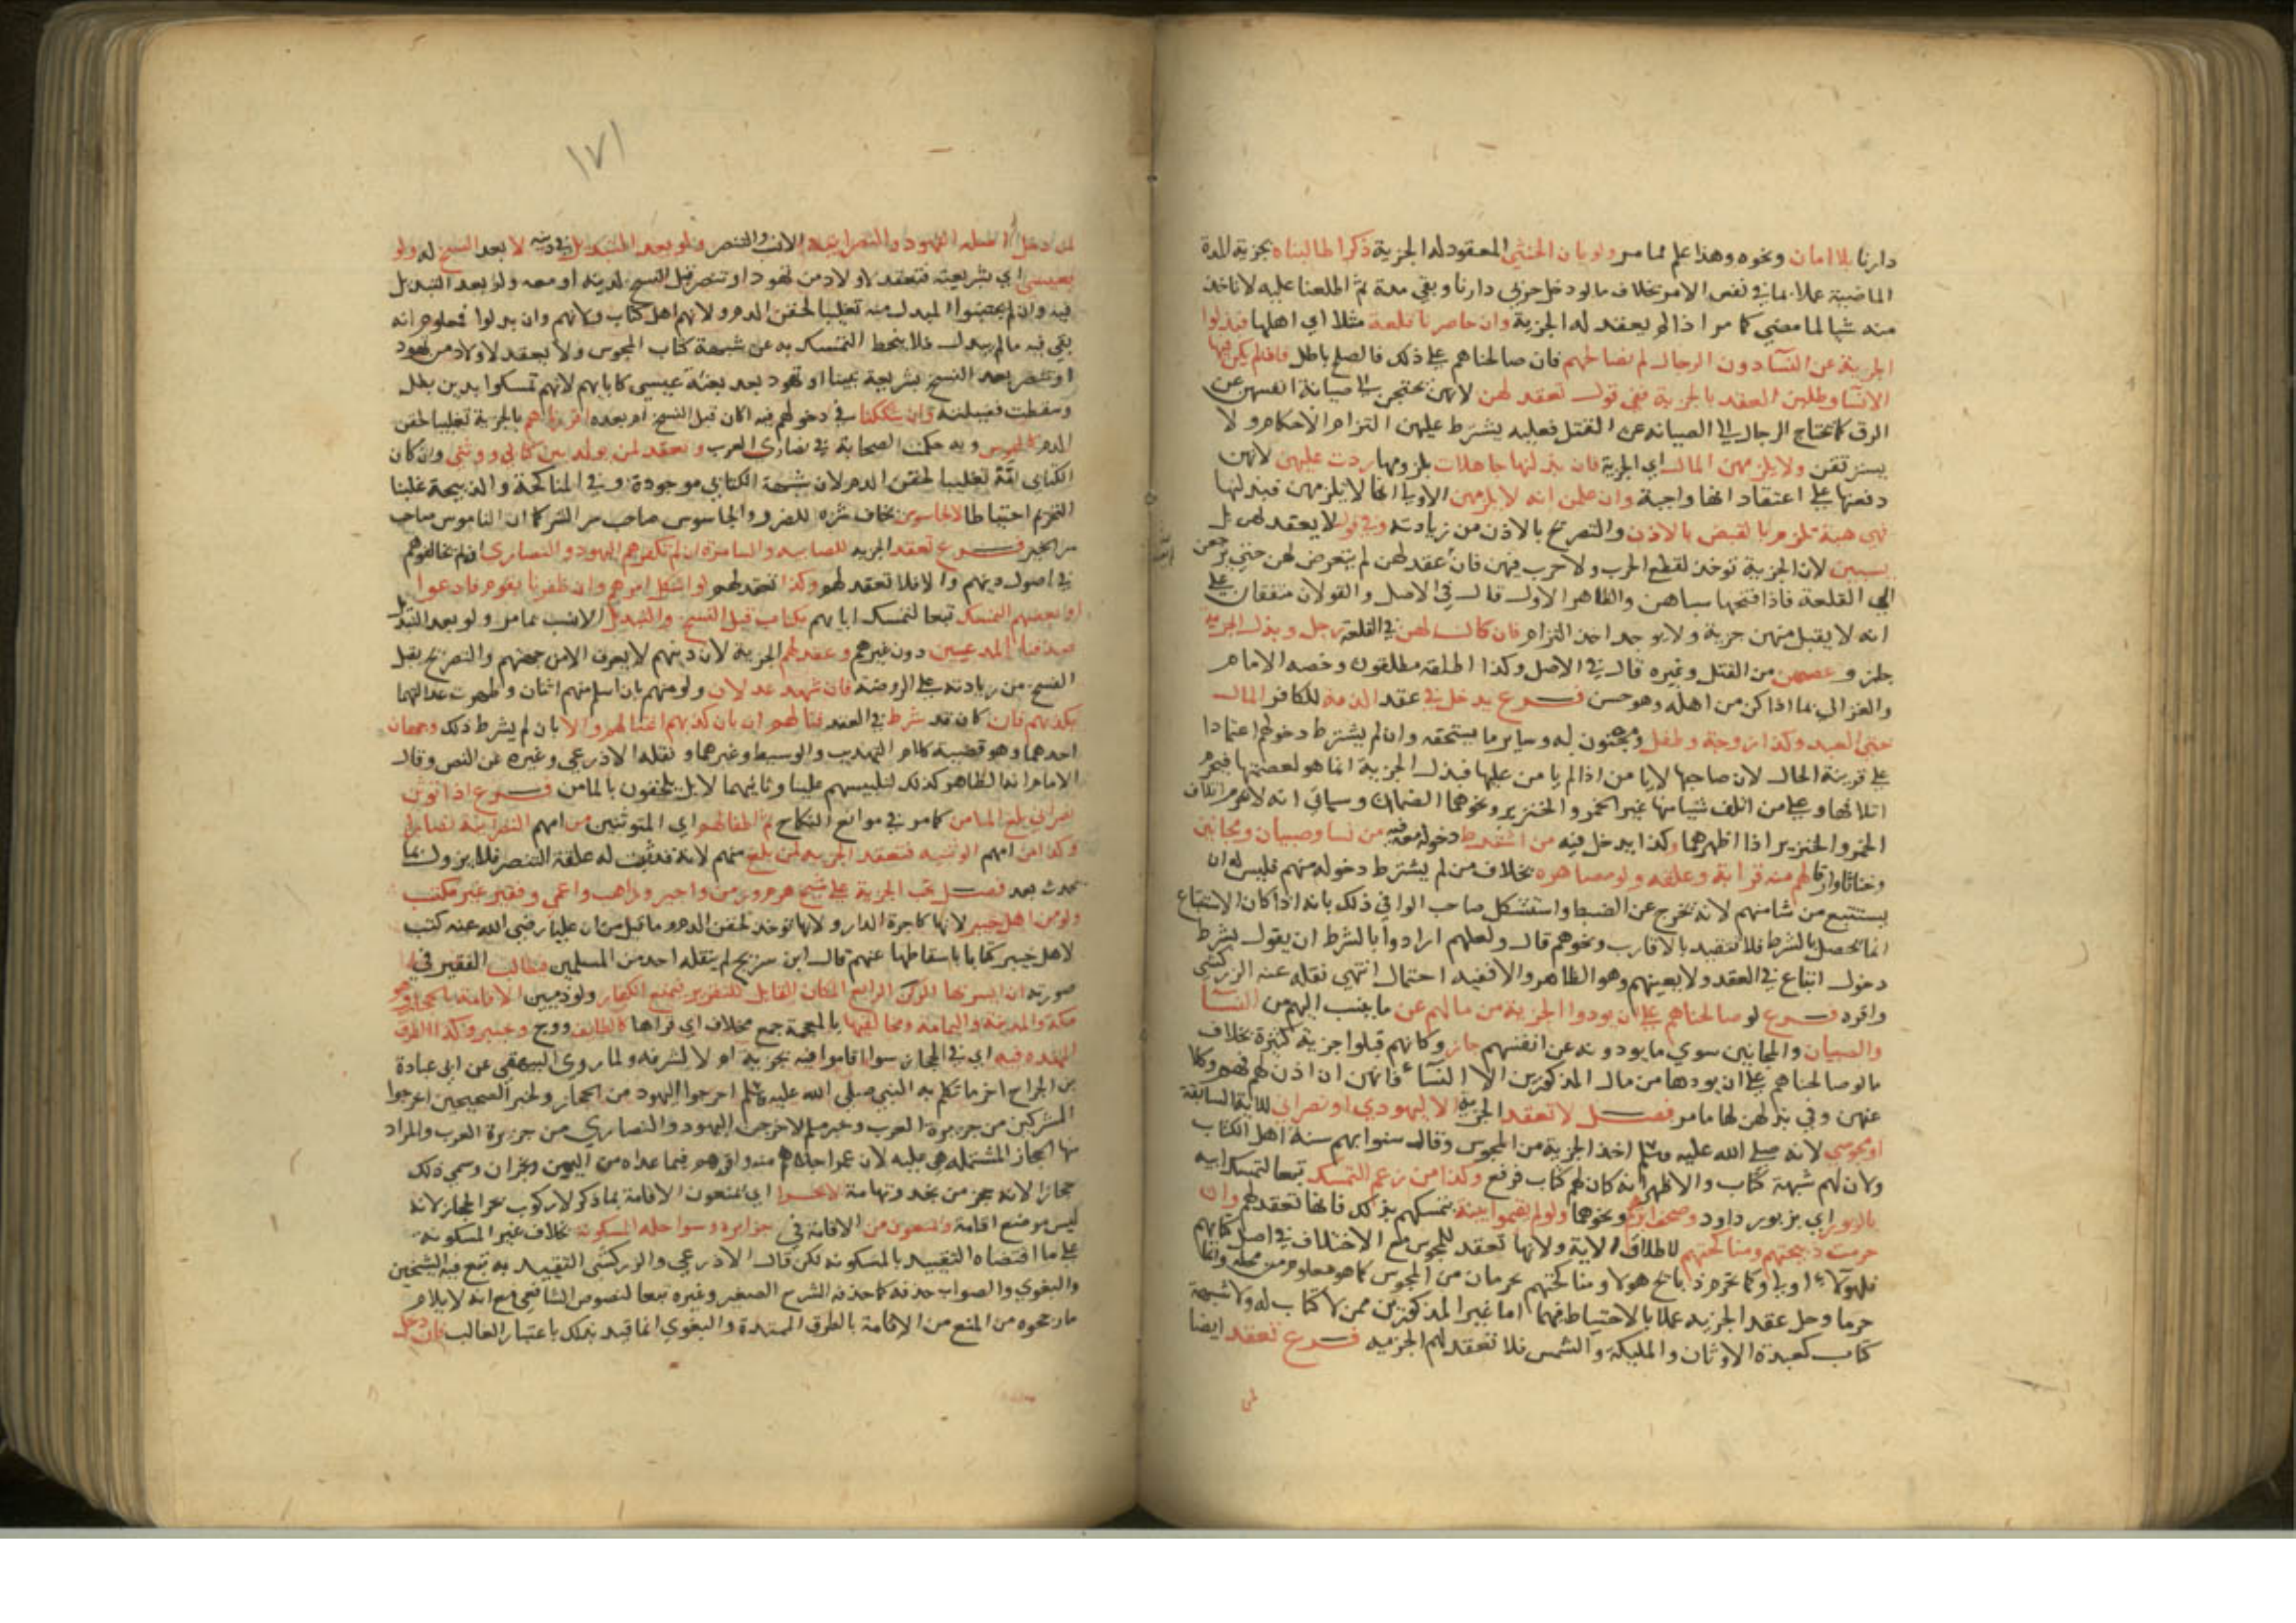 دارنا بلا امان ونحوه وهذا علم مما مر ولو بان الخنثي المعقود له الجزية ذكرا طالبناه بجزية المدة
الماضية عملا بما في نفس الامر بخلاف ما لو دخل حربي دارنا وبقي مدة ثم اطلعنا عليه لا ناخذ
منه شيا لما مضي كما مر اذا لم يعقد له الجزية وان حاصرنا قلعة مثلا اي اهلها فبذلوا
الجزية عن النسا دون الرجال لم نصالحهم فان صالحناهم علي ذلك فالصلح باطل فان لم يكن فيها
الا نسا وطلبن العقد بالجزية ففي قول تعقد لهن لانهن يحتجن الي صيانة انفسهن عن
الرق كما يحتاج الرجال الي الصيانة عن القتل فعليه يشترط عليهن التزام الاحكام ولا
يسترققن ولا يلزمهن المال اي الجزية فان بذلنها جاهلات بلزومها ردت عليهن لانهن
دفعنها علي اعتقاد انها واجبة وان علمن انه لا يلزمهن الاوليا انها لا يلزمهن فبذلنها
فهي هبة تلزم بالقبض بالاذن والتصريح بالاذن من زيادته وفي قول لا يعقد لهن بل
يسبين لان الجزية توخذ لقطع الحرب ولا حرب فيهن فان عقد لهن لم يتعرض لهن حتي يرجعن
الي القلعة فاذا فتحها سباهن والظاهر الاول قال في الاصل والقولان متفقان علي
انه لا يقبل منهن جزية ولا يوجد اخذ التزام فان كان لهن في القلعة رجل وبذل الجزية
جاز وعصمهن من القتل وغيره قال في الاصل وكذا اطلقه مطلقون وخصه الامام
والغزالي بما اذا كن من اهله وهو حسن فرع يدخل في عقد الذمة للكافر المال
حتي العبد وكذا زوجة وطفل ومجنون له وساير ما يستحقه وان لم يشترط دخولهم اعتمادا
علي قرينة الحال لان صاحبها لا يامن اذا لم يامن عليها فبذل الجزية انما هو لعصمتها فيحرم
اتلافها وعلي من اتلف شيا منها غير الخمر والخنزير ونحوهما الضمان وسياتي انه لا يحرم اتلاف
الخمر والخنزير اذا اظهرهما وكذا يدخل فيه من اشترط دخوله معه فيه من نسا وصبيان ومجانين
وخناثا وارقا لهم منه قرابة وعلقة ولو مصاهرة بخلاف من لم يشترط دخوله منهم فليس له ان
يستتبع من شا منهم لانه يخرج عن الضبط واستشكل صاحب الوافي ذلك بانه اذا كان الاستتباع
انما يحصل بالشرط فلا تتقيد بالاقارب ونحوهم قال ولعلهم ارادوا بالشرط ان يقول بشرط
دخول اتباعي في العقد ولا يعينهم وهو الظاهر والا ففيه احتمال انتهي نقله عنه الزركشي
واقره فرع لو صالحناهم علي ان يودوا الجزية من مالهم عن ما ينسب اليهم من النسا
والصبيان والمجانين سوي ما يودونه عن انفسهم جاز وكانهم قبلوا جزية كثيرة بخلاف
ما لو صالحناهم علي ان يودها من مال المذكورين الا النساء فانهن ان اذن لهم فهم وكلا
عنهن وفي بذلهن لها ما مر فصل لا تعقد الجزية الا ليهودي او نصراني للاية السابقة
او مجوسي لانه صلي الله عليه وسلم اخذ الجزية من المجوس وقال سنوا بهم سنة اهل الكتاب
ولان لهم شبهة كتاب والاظهر انه كان لهم كتاب فرفع وكذا من زعم التمسك تبعا لتمسك ابيه
بالزبور اي بزبور داود وصحف ابرهيم ونحوهما ولو لم يقيموا بينة بتمسكهم بذلك فانها تعقد لهم وان
حرمت ذبيحتهم ومناكحتهم لاطلاق الاية ولانها تعقد للمجوس مع الاختلاف في اصل كتابهم
فلهولاء اولي وكما تحرم ذبايح هولا ومناكحتهم يحرمان من المجوس كما هو معلوم من محله وانما
حرما وحل عقد الجزيه عملا بالاحتياط فيهما اما غير المذكورين ممن لا كتاب له ولا شبهة
كتاب كعبدة الاوثان والمليكة والشمس فلا تعقد لهم الجزيه فرع تعقد ايضا
لمن
١٧١
لمن دخل اصله اليهود والنصرانية الاتي والتنصر ولو بعد التبديل في دينه لا بعد النسخ له ولو
بعيسي اي بشريعته فتعقد لاولاد من تهود او تنصر قبل النسخ لدينه او معه ولو بعد التبديل
فيه وان لم يجتنبوا المبدل منه تغليبا لحقن الدم ولانهم اهل كتاب وانهم وان بدلوا فمعلوم انه
بقي فيه ما لم يبدل فلا ينحط التمسك به عن شبهة كتاب المجوس ولا يعقد لاولاد من تهود
او تنصر بعد النسخ بشريعة نبينا او تهود بعد بعثة عيسي كابايهم لانهم تمسكوا بدين بطل
وسقطت فضيلته وان شككنا في دخولهم فيه اكان قبل النسخ ام بعده اقررناهم بالجزية تغليبا لحقن
الدم كالمجوس وبه حكمت الصحابة في نصاري العرب وتعقد لمن يولد بين كتابي ووثني وان كان
الكتابي امة تغليبا لحقن الدم لان شبهة الكتابي موجودة وفي المناكحة والذبيحة غلبنا
التحريم احتياطا لا لجاسوس يخاف شره للضرر والجاسوس صاحب سر الشر كما ان الناموس صاحب
سر الخير فرع تعقد الجزيه للصابيه والسامرة ان لم تكفرهم اليهود والنصاري ان لم يخالفوهم
في اصول دينهم والا فلا تعقد لهم وكذا تعقد لهم لو اشكل امرهم وان ظفرنا بقوم فادعوا
او بعضهم التمسك تبعا لتمسك ابايهم بكتاب قبل النسخ والتبديل الانسب بما مر ولو بعد التبديل
صدقنا المدعيين دون غيرهم وعقد لهم الجزية لان دينهم لا يعرف الا من جهتهم والتصريح بقبل
النسخ من زيادته علي الروضة فان شهد عدلان ولو منهم بان اسلم منهم اثنان وظهرت عدالتهما
بكذبهم فان كان قد شرط في العقد قتالهم ان بان كذبهم اغتالهم والا بان لم يشرط ذلك وجهان
احدهما وهو قضية كلام التهذيب والوسيط وغيرهما ونقله الاذرعي وغيره عن النص وقال
الامام انه الظاهر كذلك لتلبيسهم علينا وثانيهما لا بل يلحقون بالمامن فرع اذا توثن
نصراني بلغ المامن كما مر في موانع النكاح ثم اطفالهم اي المتوثنين من امهم النصرانية نصاري
وكذا من امهم الوثنيه فتعقد الجزيه لمن بلغ منهم لانه قد ثبت له علقة التنصر فلا يزول بما
يحدث بعد فصل تجب الجزية علي شيخ هرم وزمن واجير وراهب واعمي وفقير غير مكتسب
ولو من اهل خيبر لانها كاجرة الدار ولانها توخذ لحقن الدم وما قيل من ان عليا رضي الله عنه كتب
لاهل خيبر كتابا باسقاطها عنهم قال ابن سريج لم ينقله احد من المسلمين ويطالب الفقير في
صورته ان ايسر بها الركن الرابع المكان القابل للتقرير فيمنع الكفار ولو ذميين الاقامة بالحجاز وهو
مكة والمدينة واليمامة ومخاليفها بالمعجمة جمع مخلاف اي قراها كالطايف ووج وخيبر وكذا الطرق
الممتده فيه اي في الحجاز سوا اقاموا فيه بجزية ام لا لشرفه ولما روي البيهقي عن ابي عبادة
بن الجراح اخر ما تكلم به النبي صلي الله عليه وسلم اخرجوا اليهود من الحجاز ولخبر الصحيحين اخرجوا
المشركين من جزيرة العرب وخبر مسلم لاخرجن اليهود والنصاري من جزيرة العرب والمراد
منها الحجاز المشتمله هي عليه لان عمر اجلاهم منه واقرهم فيما عداه من اليمن ونجران وسمي ذلك
حجازا لانه حجز من نجد وتهامة لابحرا اي يمنعون الاقامة بما ذكر لا ركوب بحر الحجاز لانه
ليس موضع اقامة ويمنعون من الاقامة في جزايره وسواحله المسكونة بخلاف غير المسكونة
علي ما اقتضاه التقييد بالمسكونه لكن قال الاذرعي والزركشي التقييد به تبع فيه الشيخين
والبغوي والصواب حذفه كما حذفه الشرح الصغير وغيره تبعا لنصوص الشافعي مع انه لا يلام
ما رجحوه من المنع من الاقامة بالطرق الممتدة والبغوي انما قيد بذلك باعتبار الغالب فان دخل